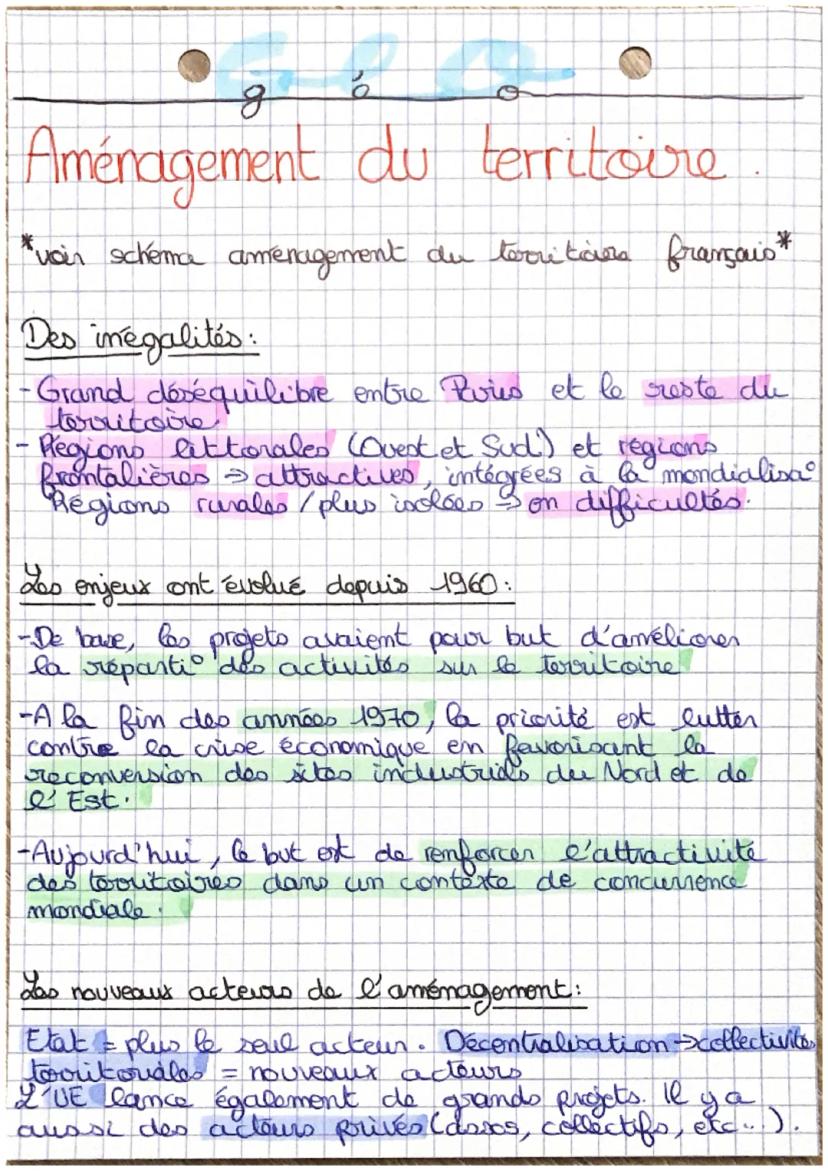 géo
Aménagement du territoire.
*voir schéma aménagement du territoire français*
Des inégalités :
- Grand déséquilibre entre Paris et le reste du
territoire.
- Régions littorales (Ouest et Sud) et régions
frontalières → attractives, intégrées à la mondialisa°
Régions rurales / plus isolées → en difficultés.
Les enjeux ont évolué depuis 1960 :
- De base, les projets avaient pour but d'améliorer
la réparti° des activités sur le territoire
- A la fin des années 1970, la priorité est lutter
contre la crise économique en favorisant la
reconversion des sites industriels du Nord et de
l'Est.
- Aujourd'hui, le but est de renforcer l'attractivité
des territoires dans un contexte de concurrence
mondiale.
Les nouveaux acteurs de l'aménagement :
Etat = plus le seul acteur. Décentralisation → collectivités
territoriales = nouveaux acteurs
L'UE lance également de grands projets. Il y a
aussi des acteurs privés (assos, collectifs, etc...).